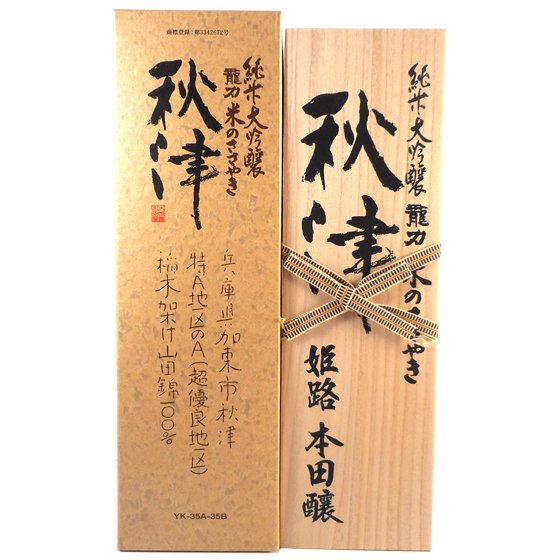 商標登録：第3342672号
純米大吟醸
龍力 米のささやき
秋津
兵庫県加東市秋津
特A地区のA（超優良地区）
稲木架け山田錦一〇〇％
YK-35A-35B
純米大吟醸 龍力 米のささやき
秋津
姫路 本田醸